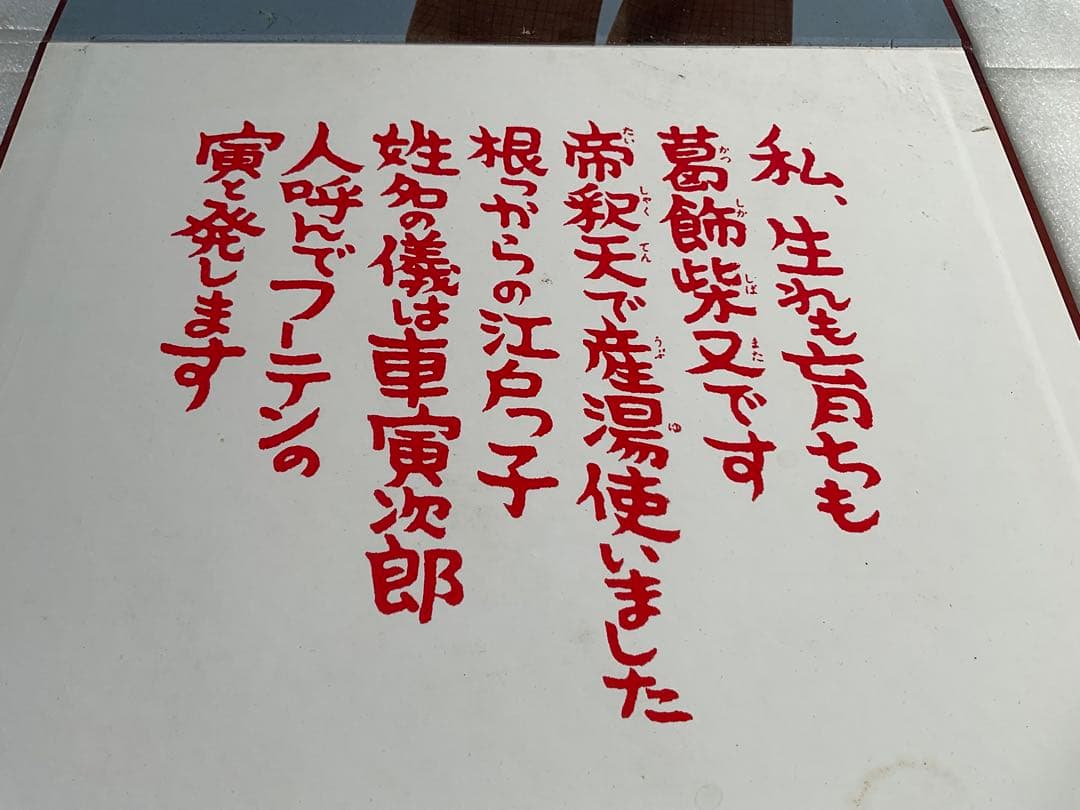 私、生れも育ちも
葛飾柴又です
帝釈天で産湯使いました
根っからの江戸っ子
姓名の儀は車寅次郎
人呼んでフーテンの
寅と発します